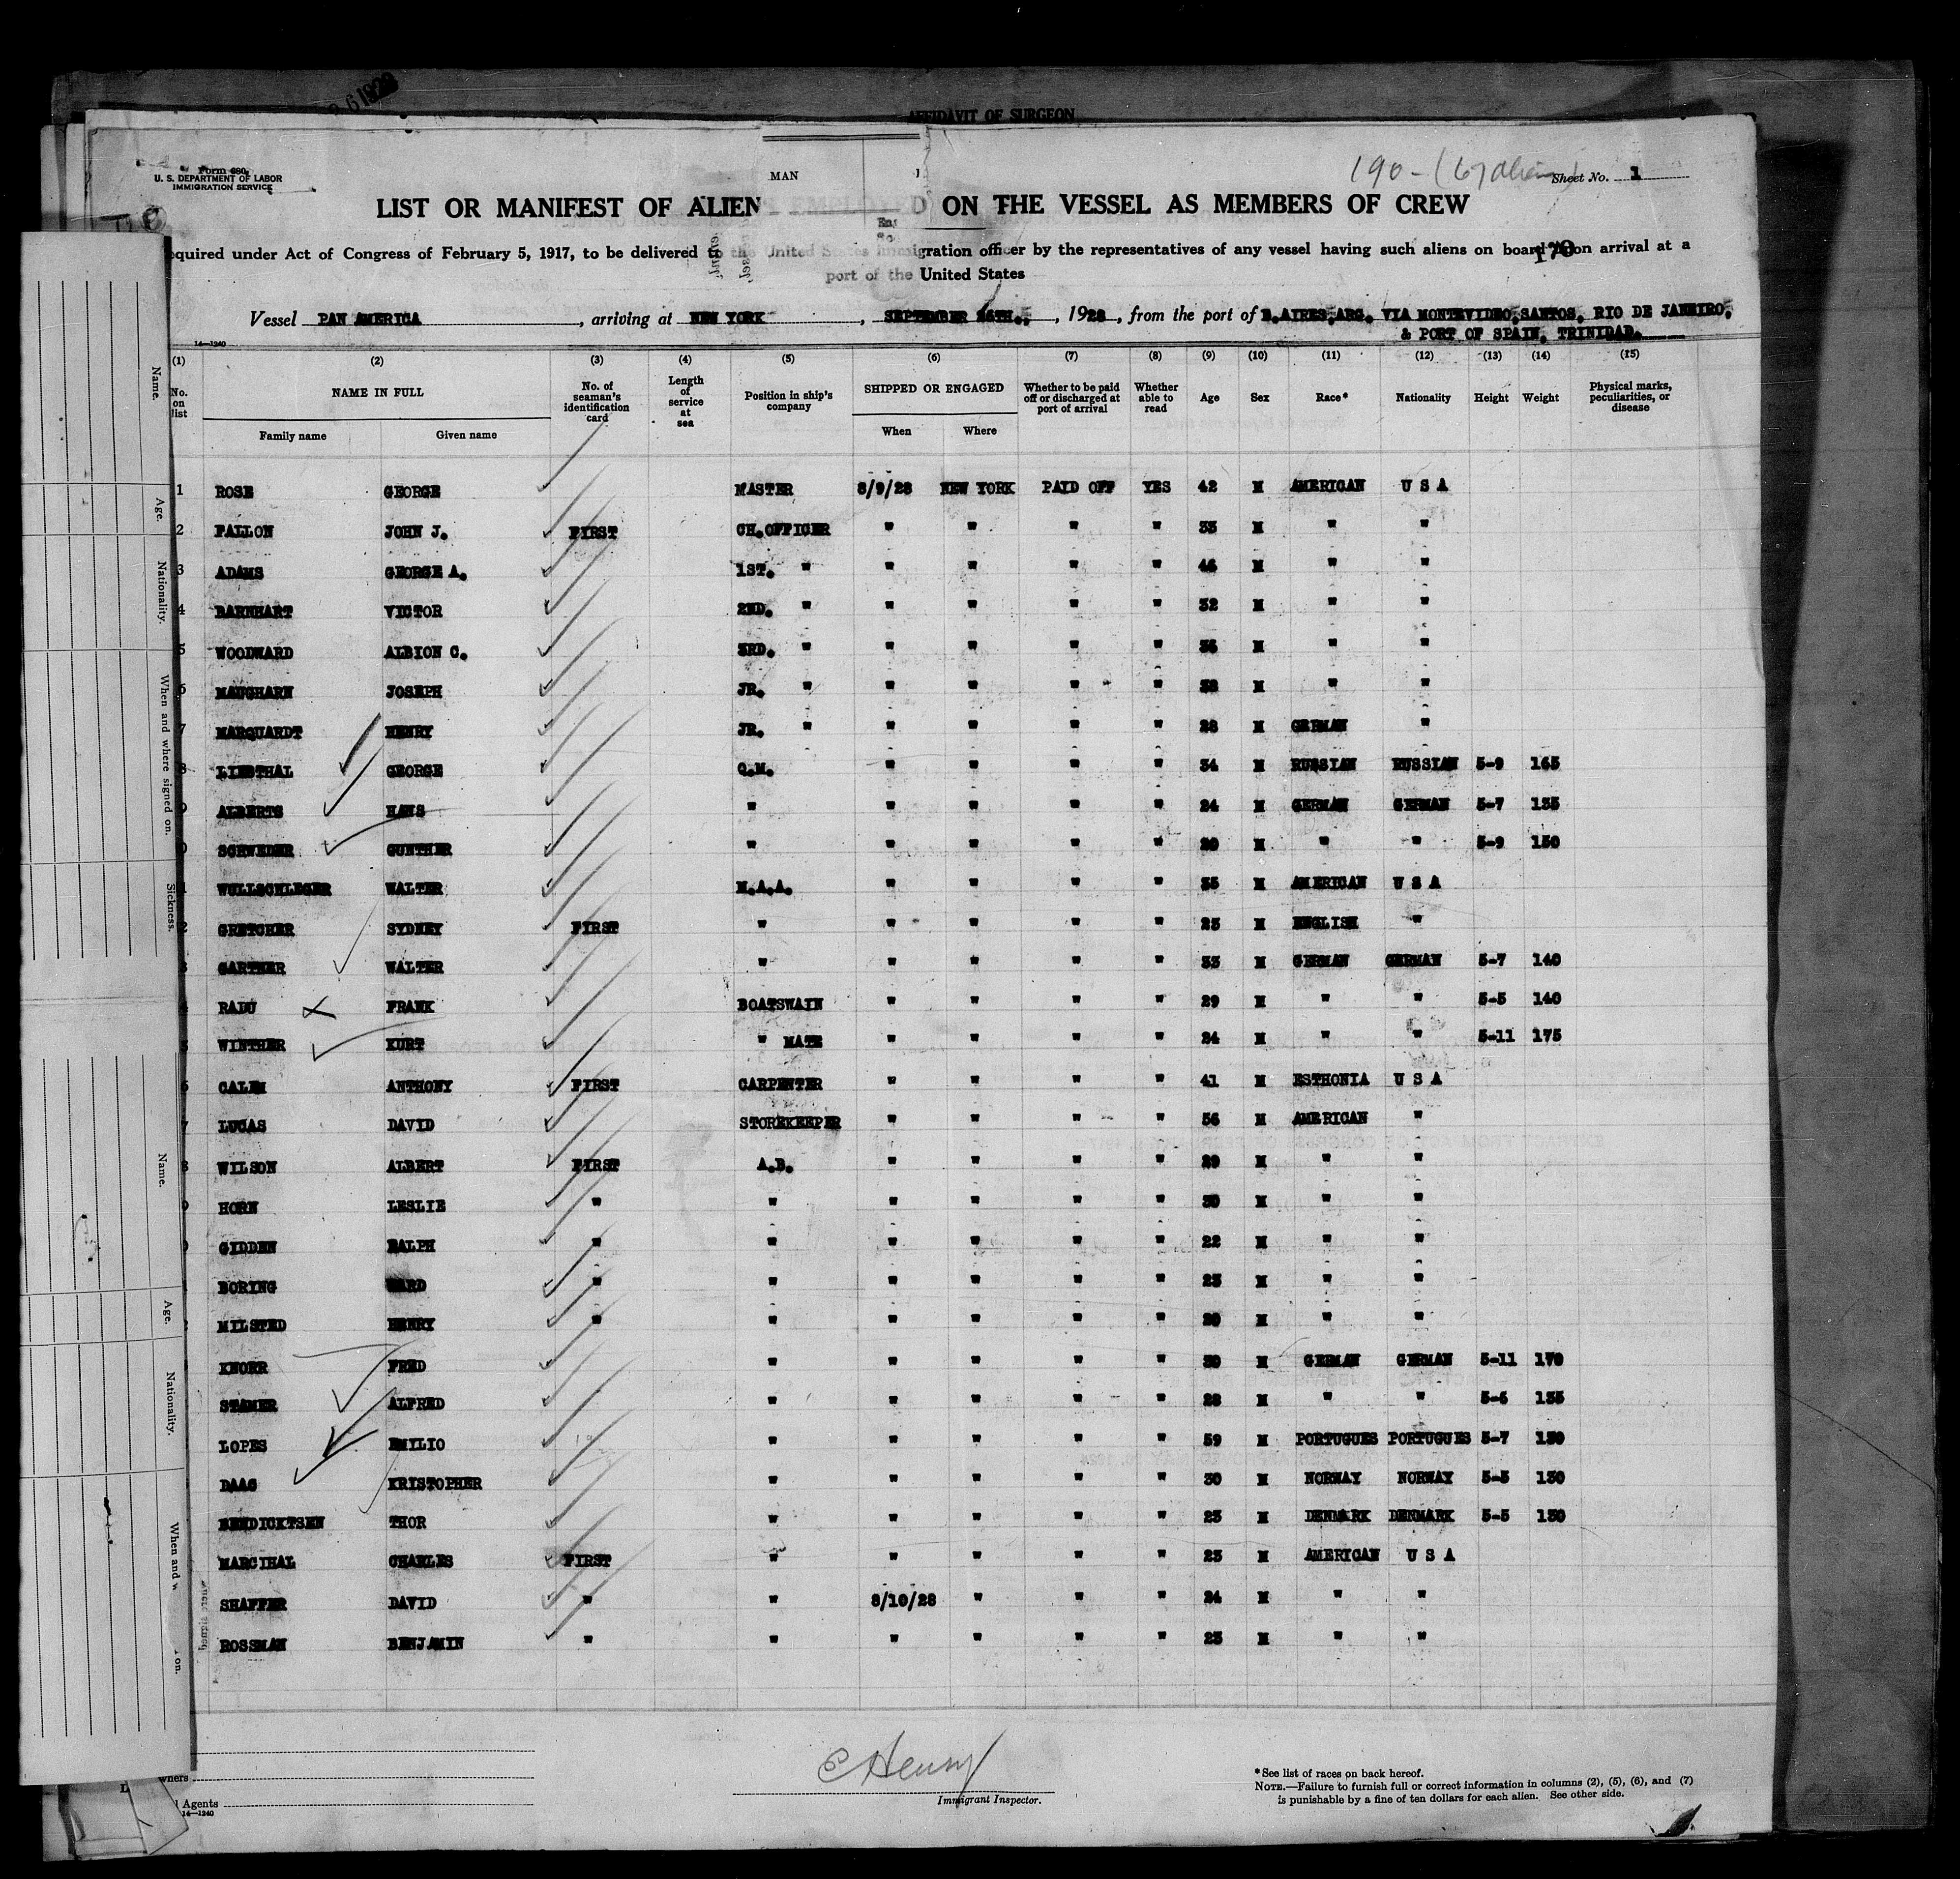 AFFIDAVIT OF SURGEON
Form 680
U. S. DEPARTMENT OF LABOR
IMMIGRATION SERVICE
MAN
190-(6)
Sheet No. 1
LIST OR MANIFEST OF ALIEN EMPLOYED ON THE VESSEL AS MEMBERS OF CREW
equired under Act of Congress of February 5, 1917, to be delivered to the United States immigration officer by the representatives of any vessel having such aliens on board upon arrival at a
170
port of the United States
Vessel PAN AMERICA, arriving at NEW YORK, SEPTEMBER 1928, from the port of B.AIRES,ARG. VIA MONTEVIDEO,SANTOS, RIO DE JANEIRO,
& PORT OF SPAIN, TRINIDAD.
14—1240
(1) (2) (3) (4) (5) (6) (7) (8) (9) (10) (11) (12) (13) (14) (15)
No. on list NAME IN FULL No. of seaman's identification card Length of service at sea Position in ship's company SHIPPED OR ENGAGED Whether to be paid off or discharged at port of arrival Whether able to read Age Sex Race* Nationality Height Weight Physical marks, peculiarities, or disease
Family name Given name When Where
1 ROSE GEORGE MASTER 8/9/28 NEW YORK PAID OFF YES 42 M AMERICAN U S A
2 FALLON JOHN J. FIRST CH.OFFICER " " " " 33 M " "
3 ADAMS GEORGE A. 1ST. " " " " " 46 M " "
4 BARNHART VICTOR 2ND. " " " " " 32 M " "
5 WOODWARD ALBION C. 3RD. " " " " " 36 M " "
6 MAUGHARN JOSEPH JR. " " " " " 38 M " "
7 MARQUARDT HENRY JR. " " " " " 28 M GERMAN "
8 LIESTHAL GEORGE Q.M. " " " " 34 M RUSSIAN RUSSIAN 5-9 165
9 ALBERTS HANS " " " " " 24 M GERMAN GERMAN 5-7 135
0 SCHWEDER GUNTHER " " " " " 20 M " " 5-9 150
1 WULLSCHLEGER WALTER M.A.A. " " " " 35 M AMERICAN U S A
2 GRETCHER SYDNEY FIRST " " " " " 23 M ENGLISH "
3 GARTNER WALTER " " " " " 33 M GERMAN GERMAN 5-7 140
4 RADU FRANK BOATSWAIN " " " " 29 M " " 5-5 140
5 WINTHER KURT " MATE " " " " 24 M " " 5-11 175
6 CALEM ANTHONY FIRST CARPENTER " " " " 41 M ESTHONIA U S A
7 LUCAS DAVID STOREKEEPER " " " " 56 M AMERICAN "
8 WILSON ALBERT FIRST A.B. " " " " 29 M " "
9 HORN LESLIE " " " " " " 30 M " "
0 GIDDEN RALPH " " " " " " 22 M " "
1 BORING WARD " " " " " " 23 M " "
MILSTED HENRY " " " " " " 20 M " "
KNORR FRED " " " " " 30 M GERMAN GERMAN 5-11 170
STAMER ALFRED " " " " " 28 M " " 5-6 135
LOPES EMILIO " " " " " 59 M PORTUGUES PORTUGUES 5-7 150
DAAG KRISTOPHER " " " " " 30 M NORWAY NORWAY 5-5 130
BENDICKTSEN THOR " " " " " 23 M DENMARK DENMARK 5-5 130
MARCIHAL CHARLES FIRST " " " " " 23 M AMERICAN U S A
SHAFFER DAVID " " 8/10/28 " " " 24 M " "
ROSSMAN BENJAMIN " " " " " " 23 M " "
C Henry
Immigrant Inspector.
wners
l Agents
14—1240
*See list of races on back hereof.
NOTE.—Failure to furnish full or correct information in columns (2), (5), (6), and (7)
is punishable by a fine of ten dollars for each alien. See other side.
Name.
Age.
Nationality.
When and where signed on.
Sickness.
Name.
Age.
Nationality.
When and w
on.